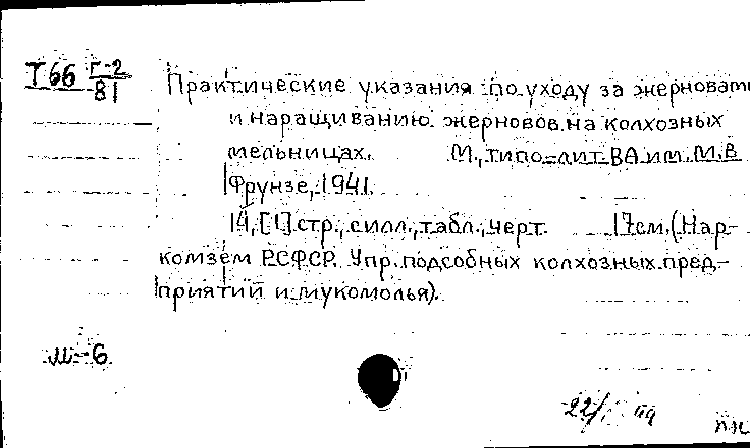 Т66 Г-2
81
Практические указания по уходу за жерновами
и наращиванию жерновов на колхозных
мельницах. М., типо-лит. ВА им. М.В.
Фрунзе, 1941.
14, [1] стр., с илл., табл., черт. 17 см. (Нар-
комзем РСФСР. Упр. подсобных колхозных пред-
приятий и мукомолья).
м-6
22/